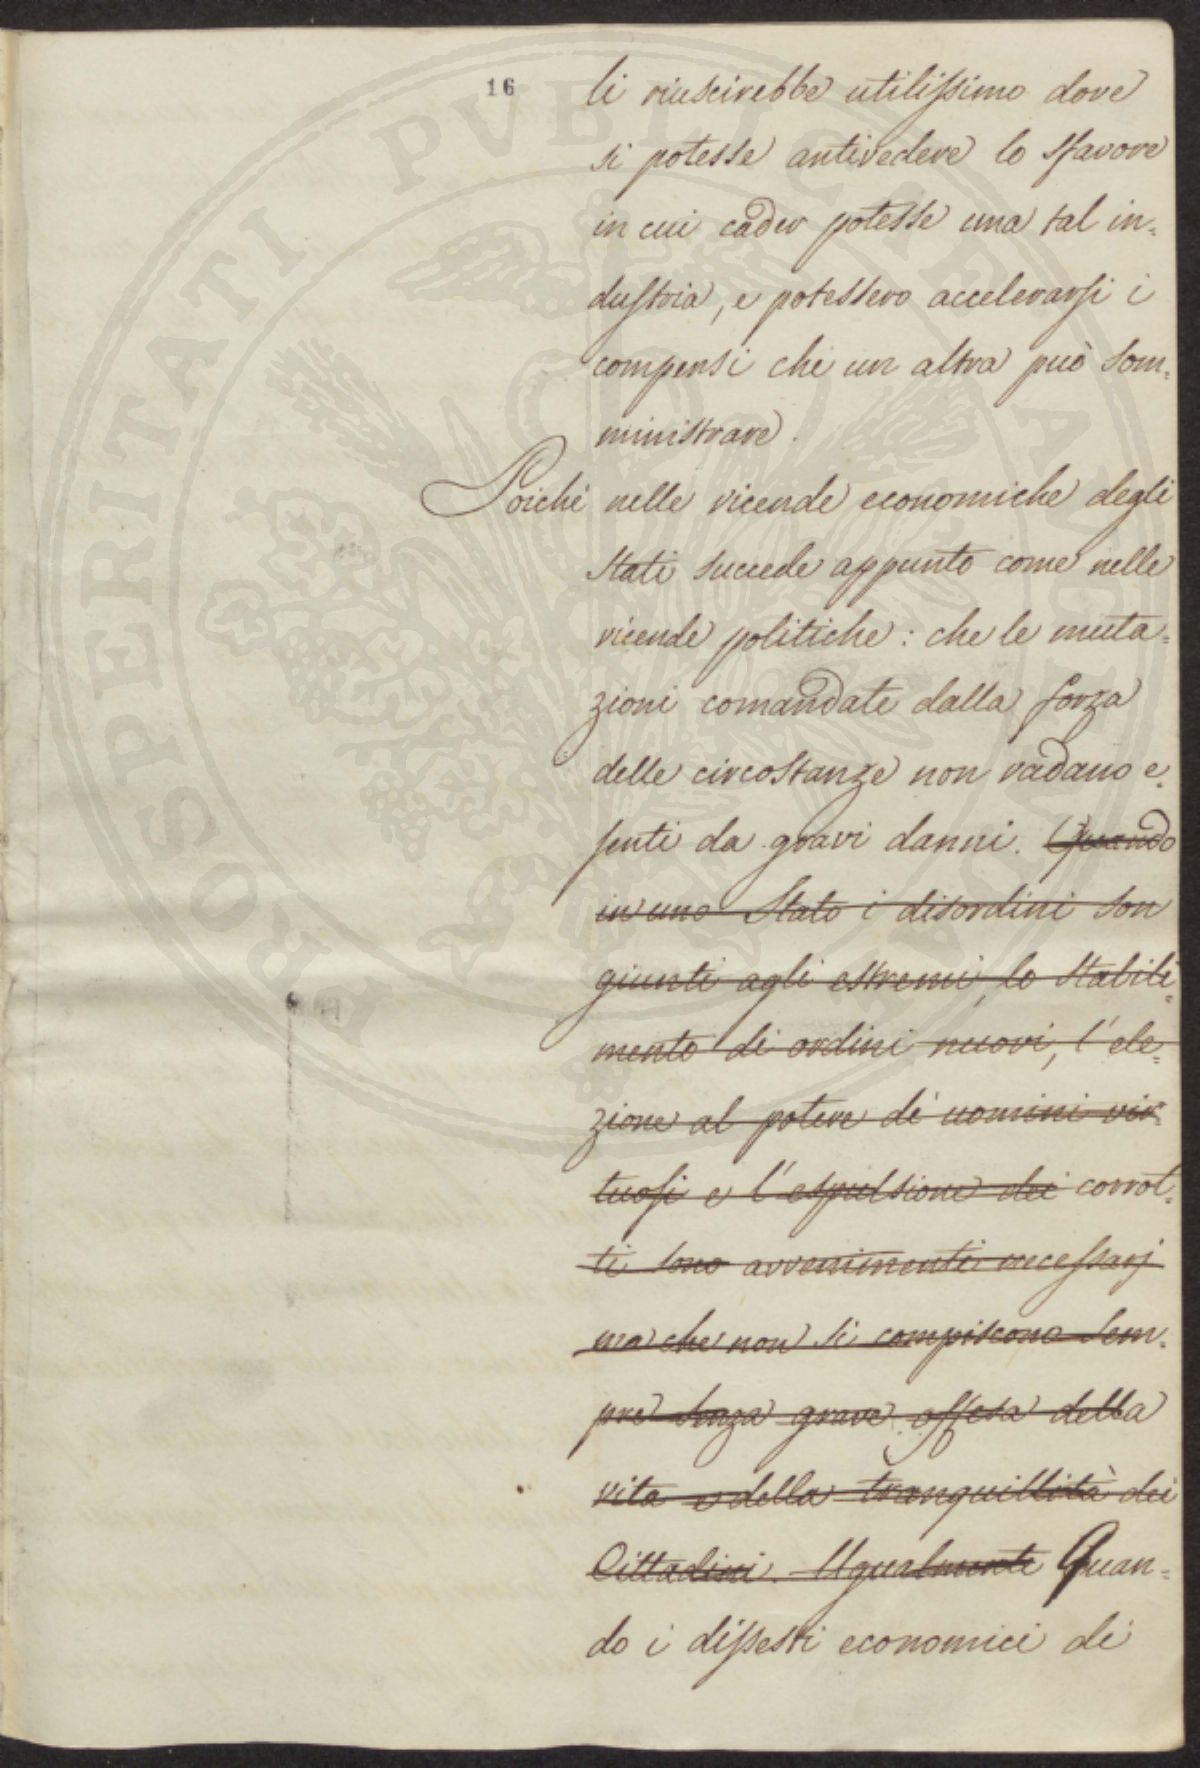 16
li riuscirebbe utilissimo dove
si potesse antivedere lo sfavore
in cui cader potesse una tal in=
dustria, e potessero accelerarsi i
compensi che un altra può som=
ministrare.
Poiché nelle vicende economiche degli
Stati succede appunto come nelle
vicende politiche: che le muta=
zioni comandate dalla forza
delle circostanze non vadano e=
senti da gravi danni. Quando
in uno Stato i disordini son
giunti agli estremi, lo stabili=
mento di ordini nuovi, l'ele=
zione al potere di uomini vir=
tuosi e l'espulsione dei corrot=
ti sono avvenimenti necessarj
ma che non si compiscono sem=
pre senza grave offesa della
vita e della tranquillità dei
Cittadini. Ugualmente Quan=
do i dissesti economici di
PROSPERITATI PVBLICAE AVGENDAE